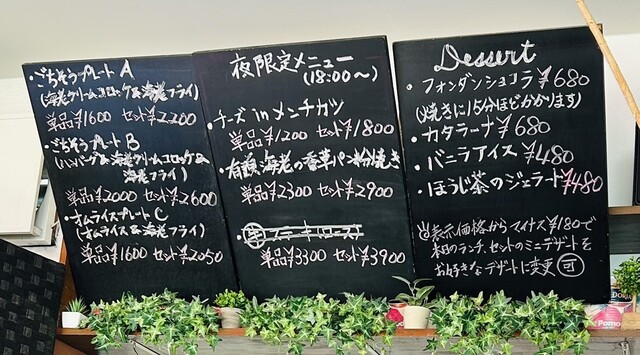 ・ごちそうプレートA
(海老クリームコロッケ&海老フライ)
単品¥1600 セット¥2200
・ごちそうプレートB
(ハンバーグ&海老クリームコロッケ&
海老フライ)
単品¥2000 セット¥2600
・オムライスプレートC
(オムライス&海老フライ)
単品¥1600 セット¥2050
夜限定メニュー
(18:00〜)
・チーズinメンチカツ
単品¥1200 セット¥1800
・有頭海老の香草パン粉焼き
単品¥2300 セット¥2900
単品¥3300 セット¥3900
Dessert
・フォンダンショコラ¥680
(焼きに15分ほどかかります)
・カタラーナ¥680
・バニラアイス¥480
・ほうじ茶のジェラート¥480
表示価格からマイナス¥180で
本日のランチ、セットのミニデザートを
お好きなデザートに変更 可